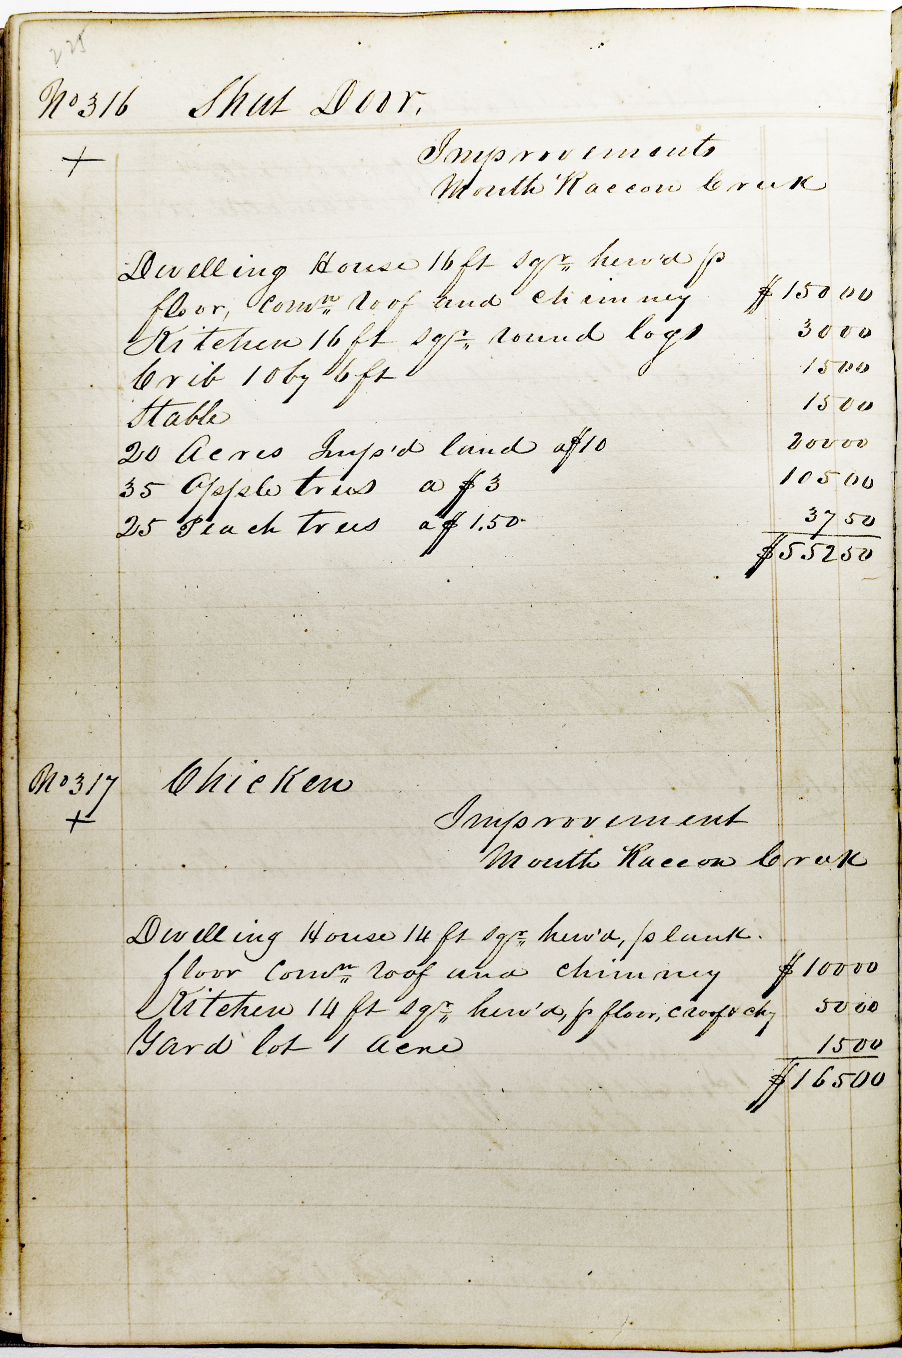 225
No 316 Shut Door.
+
Improvements
Mouth Raccoon Creek
Dwelling House 16 ft sqr. hew'd p
floor, comn. roof and chimney $150 00
Kitchen 16 ft sqr. round logs 30 00
Crib 10 by 6 ft 15 00
Stable 15 00
20 Acres Imp'd land a $10 200 00
35 Apple trees a $3 105 00
25 Peach trees a $1.50 37 50
$552 50
No 317 Chicken
+
Improvement
Mouth Raccoon Creek
Dwelling House 14 ft sqr. hew'd, plank
floor comn. roof and chimney $100 00
Kitchen 14 ft sqr. hew'd, p floor, c roof & chy 50 00
Yard lot 1 acre 15 00
$165 00